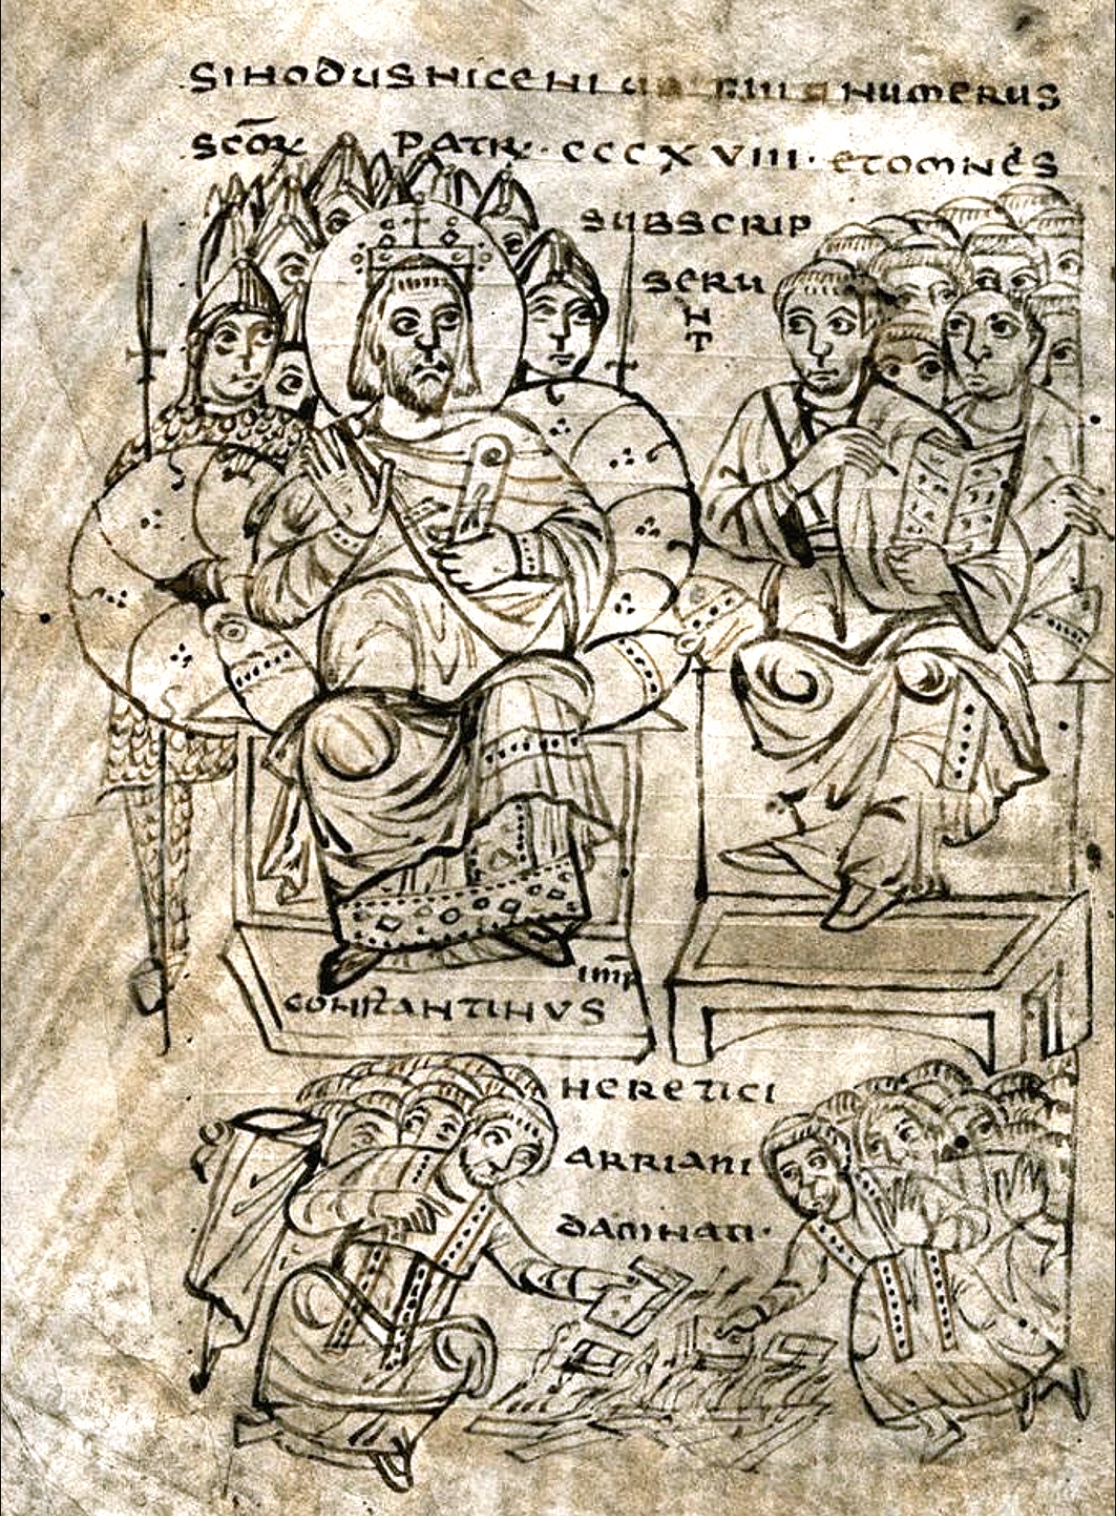 SINODUS NICENI NUMERUS
SCŌR PATR· CCCXVIII· ET OMNES
SUBSCRIP
SERU
N
T
IMP
CONSTANTINUS
HERETICI
ARRIANI
DAMNATI·